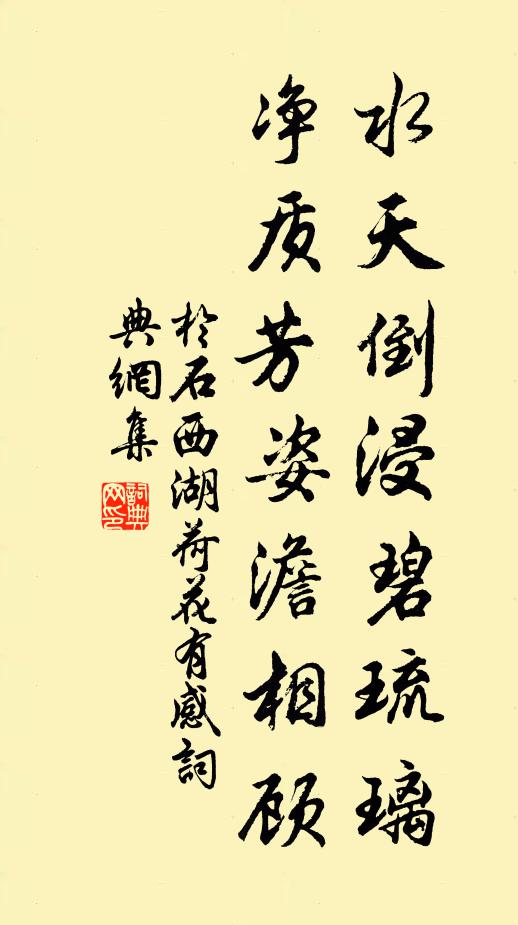 水天倒浸碧琉璃
净质芳姿澹相顾
於石西湖荷花有感詞
典網集
詞典
网印